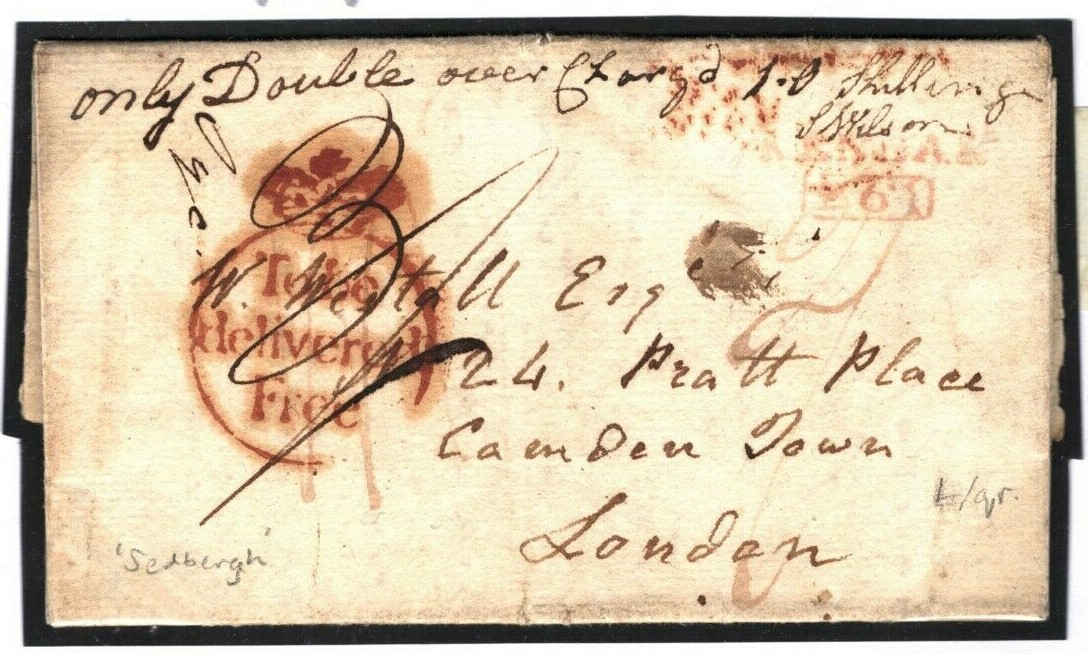 only Double over Charg'd 1.0 Shilling
S Wilson
KENDAL
261
To be
delivered
Free
W. Westall Esqr
24. Pratt Place
Camden Town
London
'Sedbergh'